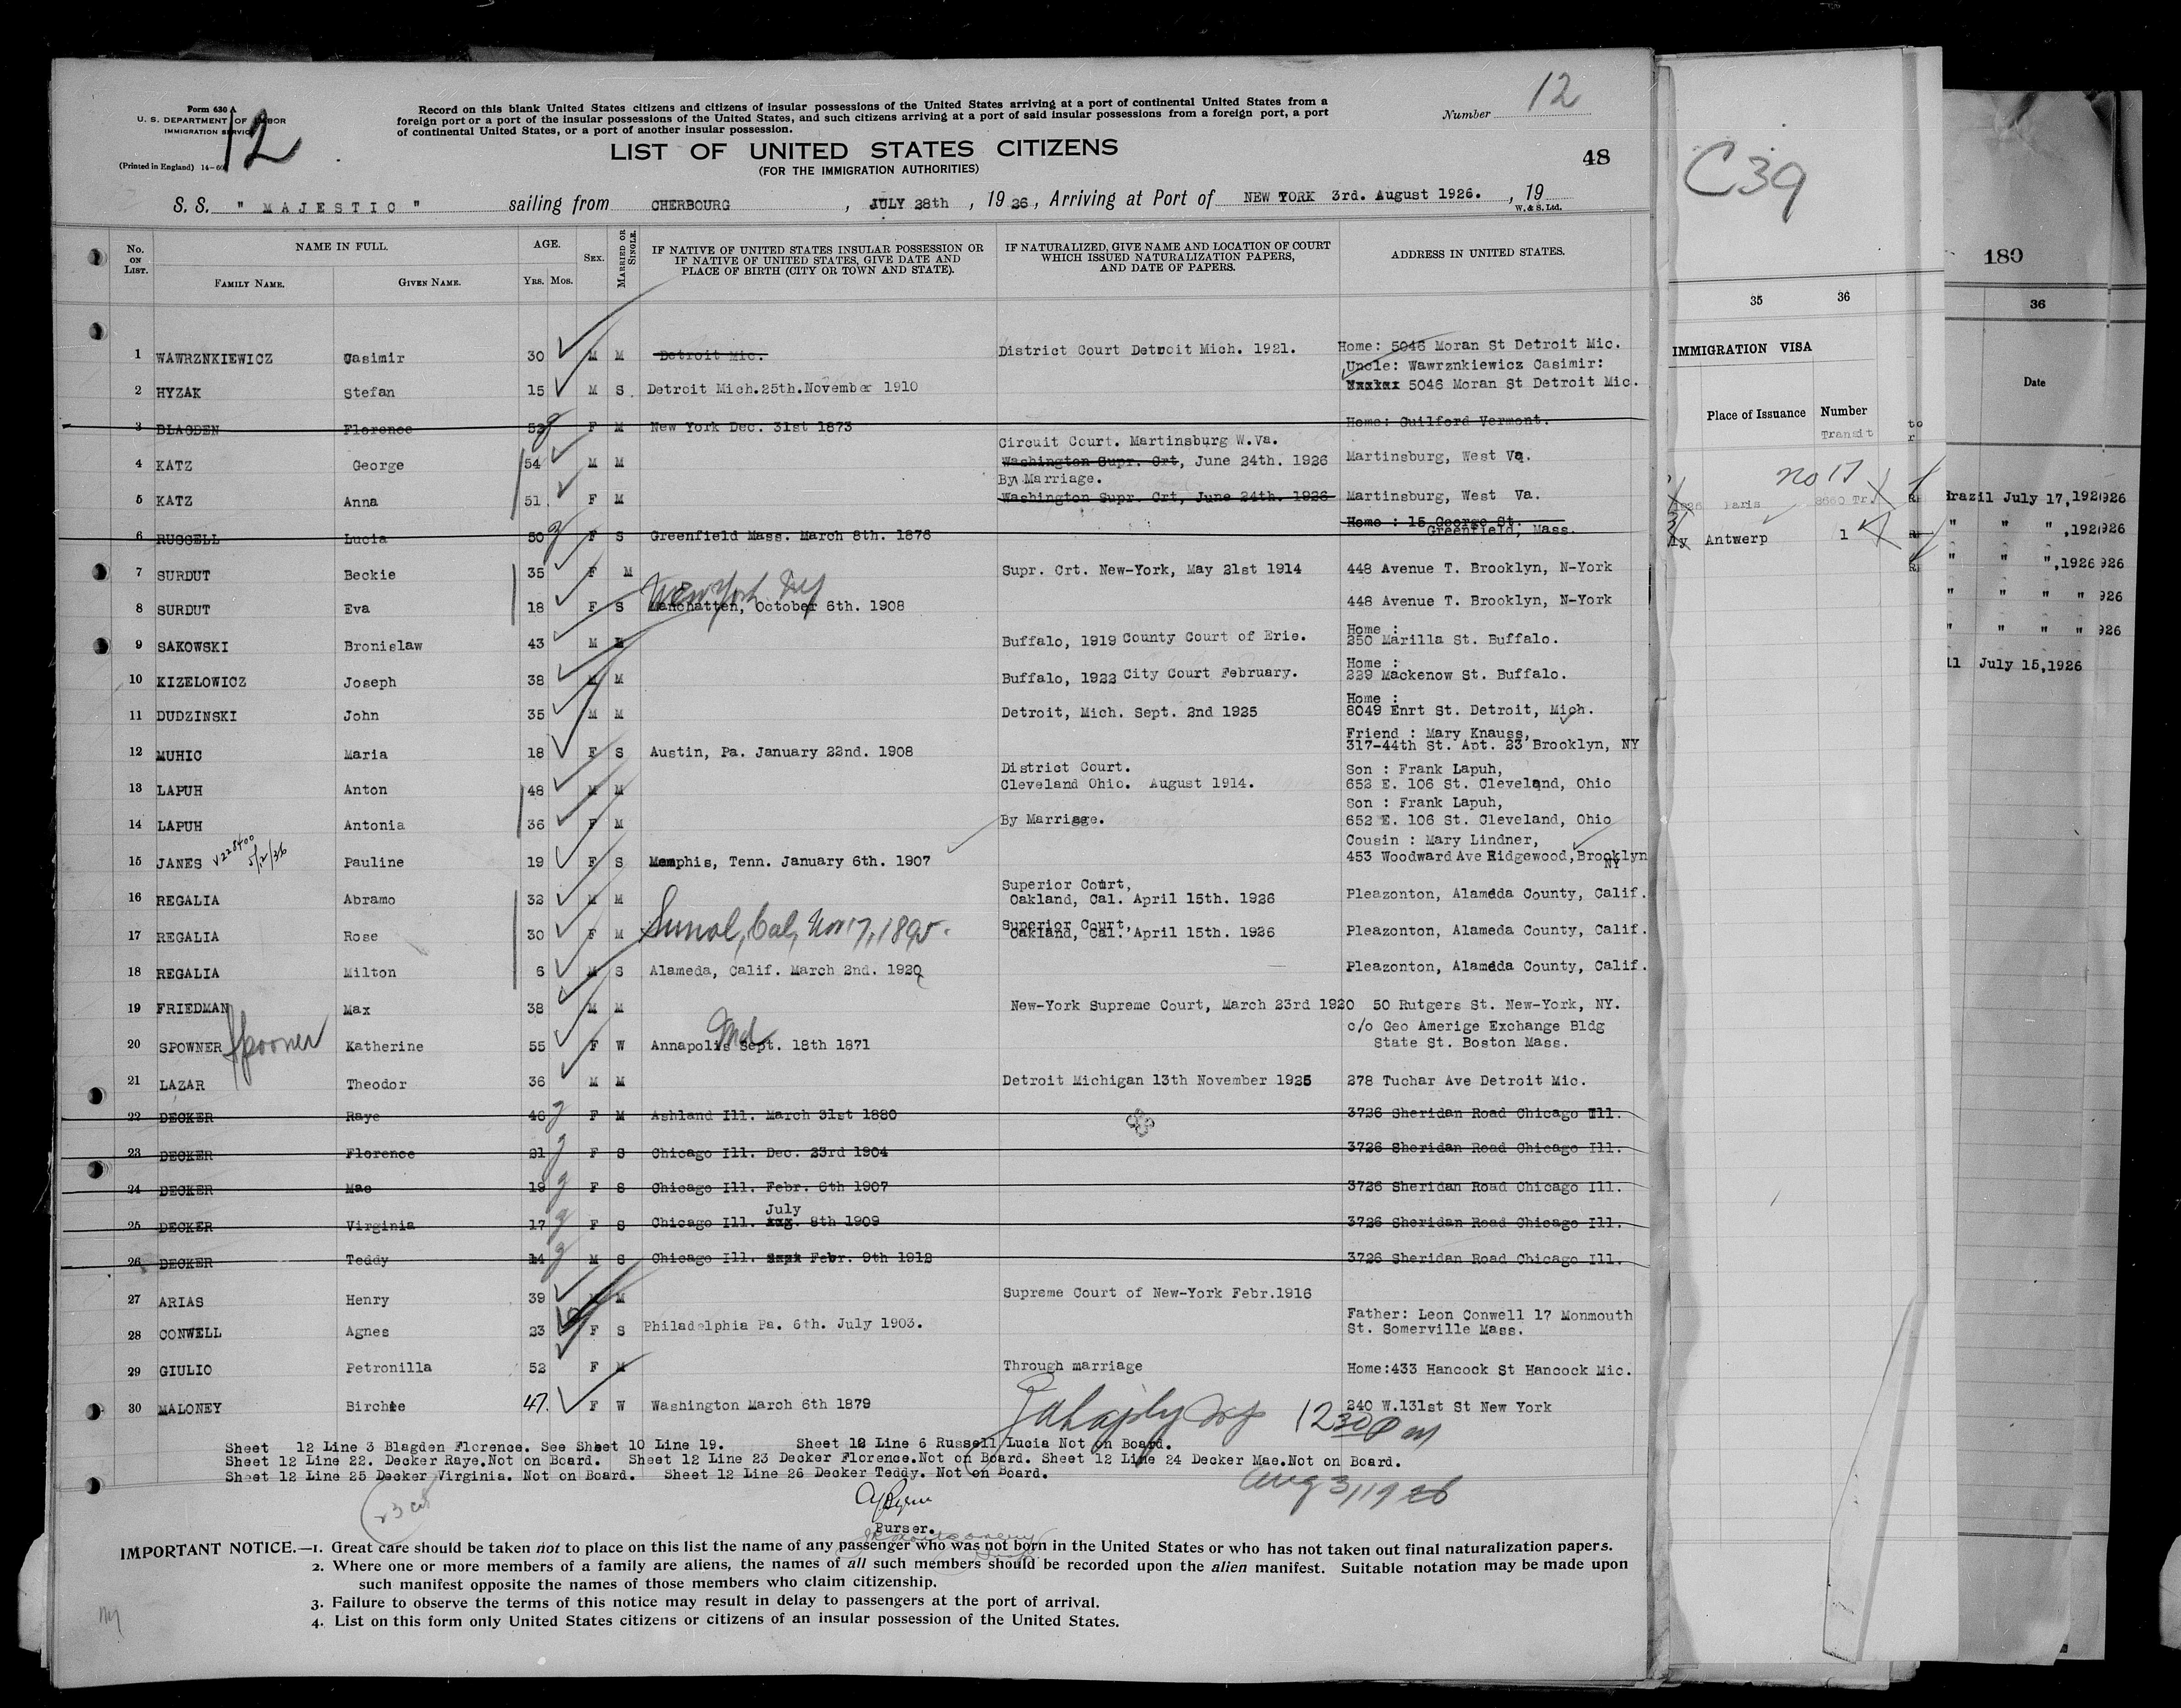 Form 630 A
U. S. DEPARTMENT OF LABOR
IMMIGRATION SERVICE
(Printed in England) 14—60
12
Record on this blank United States citizens and citizens of insular possessions of the United States arriving at a port of continental United States from a
foreign port or a port of the insular possessions of the United States, and such citizens arriving at a port of said insular possessions from a foreign port, a port
of continental United States, or a port of another insular possession.
Number 12
LIST OF UNITED STATES CITIZENS
(FOR THE IMMIGRATION AUTHORITIES)
48
S. S. " MAJESTIC " sailing from CHERBOURG , JULY 28th , 19 26, Arriving at Port of NEW YORK 3rd. August 1926. , 19
W. & S. Ltd.
No. ON LIST. NAME IN FULL. AGE. SEX. MARRIED OR SINGLE. IF NATIVE OF UNITED STATES INSULAR POSSESSION OR IF NATIVE OF UNITED STATES, GIVE DATE AND PLACE OF BIRTH (CITY OR TOWN AND STATE). IF NATURALIZED, GIVE NAME AND LOCATION OF COURT WHICH ISSUED NATURALIZATION PAPERS, AND DATE OF PAPERS. ADDRESS IN UNITED STATES.
FAMILY NAME. GIVEN NAME. Yrs. Mos.
1 WAWRZNKIEWICZ Casimir 30 M M Detroit Mic. District Court Detroit Mich. 1921. Home: 5046 Moran St Detroit Mic.
Uncle: Wawrznkiewicz Casimir:
2 HYZAK Stefan 15 M S. Detroit Mich.25th.November 1910 5046 Moran St Detroit Mic.
3 BLAGDEN Florence 52 F M New York Dec. 31st 1873 Home: Guilford Vermont.
Circuit Court. Martinsburg W.Va.
4 KATZ George 54 M M Washington Supr. Crt, June 24th. 1926 Martinsburg, West Va.
By Marriage.
5 KATZ Anna 51 F M Washington Supr. Crt, June 24th. 1926 Martinsburg, West Va.
Home : 15 George St.
6 RUSSELL Lucia 50 F S Greenfield Mass. March 8th. 1876 Greenfield, Mass.
7 SURDUT Beckie 35 F M Supr. Crt. New-York, May 21st 1914 448 Avenue T. Brooklyn, N-York
New York NY
8 SURDUT Eva 18 F S Manchatten, October 6th. 1908 448 Avenue T. Brooklyn, N-York
Home :
9 SAKOWSKI Bronislaw 43 M M Buffalo, 1919 County Court of Erie. 250 Marilla St. Buffalo.
Home :
10 KIZELOWICZ Joseph 38 M M Buffalo, 1922 City Court February. 229 Mackenow St. Buffalo.
Home :
11 DUDZINSKI John 35 M M Detroit, Mich. Sept. 2nd 1925 8049 Enrt St. Detroit, Mich.
Friend : Mary Knauss,
12 MUHIC Maria 18 F S Austin, Pa. January 22nd. 1908 317-44th St. Apt. 23 Brooklyn, NY
District Court. Son : Frank Lapuh,
13 LAPUH Anton 48 M M Cleveland Ohio. August 1914. 652 E. 106 St. Cleveland, Ohio
Son : Frank Lapuh,
14 LAPUH Antonia 36 F M By Marriage. 652 E. 106 St. Cleveland, Ohio
Cousin : Mary Lindner,
15 JANES V228400 5/2/36 Pauline 19 F S Memphis, Tenn. January 6th. 1907 453 Woodward Ave Ridgewood, Brooklyn NY
Superior Court,
16 REGALIA Abramo 32 M M Oakland, Cal. April 15th. 1926 Pleazonton, Alameda County, Calif.
Superior Court,
17 REGALIA Rose 30 F M Sunol, Cal, Nov 17, 1895. Oakland, Cal. April 15th. 1926 Pleazonton, Alameda County, Calif.
18 REGALIA Milton 6 M S Alameda, Calif. March 2nd. 1920 Pleazonton, Alameda County, Calif.
19 FRIEDMAN Max 38 M M New-York Supreme Court, March 23rd 1920 50 Rutgers St. New-York, NY.
c/o Geo Amerige Exchange Bldg
20 SPOWNER Spooner Katherine 55 F W Annapolis Md Sept. 18th 1871 State St. Boston Mass.
21 LAZAR Theodor 36 M M Detroit Michigan 13th November 1925 278 Tuchar Ave Detroit Mic.
22 DECKER Raye 46 F M Ashland Ill. March 31st 1880 3726 Sheridan Road Chicago Ill.
23 DECKER Florence 21 F S Chicago Ill. Dec. 23rd 1904 3726 Sheridan Road Chicago Ill.
24 DECKER Mae 19 F S Chicago Ill. Febr. 6th 1907 3726 Sheridan Road Chicago Ill.
July
25 DECKER Virginia 17 F S Chicago Ill. 8th 1909 3726 Sheridan Road Chicago Ill.
26 DECKER Teddy 14 M S Chicago Ill. Febr. 9th 1912 3726 Sheridan Road Chicago Ill.
27 ARIAS Henry 39 M M Supreme Court of New-York Febr.1916
Father: Leon Conwell 17 Monmouth
28 CONWELL Agnes 23 F S Philadelphia Pa. 6th. July 1903. St. Somerville Mass.
29 GIULIO Petronilla 52 F M Through marriage Home:433 Hancock St Hancock Mic.
30 MALONEY Birchie 47. F W Washington March 6th 1879 240 W.131st St New York
12 30 Pm
Sheet 12 Line 3 Blagden Florence. See Sheet 10 Line 19. Sheet 12 Line 6 Russell Lucia Not on Board.
Sheet 12 Line 22. Decker Raye.Not on Board. Sheet 12 Line 23 Decker Florence.Not on Board. Sheet 12 Line 24 Decker Mae.Not on Board.
Sheet 12 Line 25 Decker Virginia. Not on Board. Sheet 12 Line 26 Decker Teddy. Not on Board.
Aug 3/1926
Purser.
IMPORTANT NOTICE.—1. Great care should be taken not to place on this list the name of any passenger who was not born in the United States or who has not taken out final naturalization papers.
2. Where one or more members of a family are aliens, the names of all such members should be recorded upon the alien manifest. Suitable notation may be made upon
such manifest opposite the names of those members who claim citizenship.
3. Failure to observe the terms of this notice may result in delay to passengers at the port of arrival.
4. List on this form only United States citizens or citizens of an insular possession of the United States.
C39
35 36
IMMIGRATION VISA
Place of Issuance Number
Transit
No 17
1926 Paris 8660 Tr.
Antwerp 1
180
36
Date
Brazil July 17, 1926
" " " ,1926
" " ",1926
" " " "
" " " "
July 15,1926